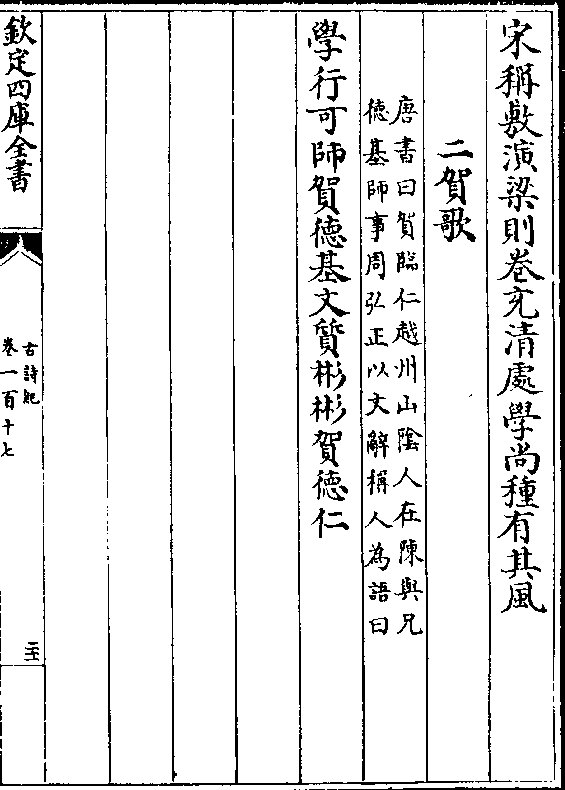 宋稱敷演梁則卷充清處學尚種有其風
二賀歌
唐書曰賀臨仁越州山陰人在陳與兄
德基師事周弘正以文辭稱人為語曰
學行可師賀德基文質彬彬賀德仁
欽定四庫全書
古詩紀
卷一百十七
二十五